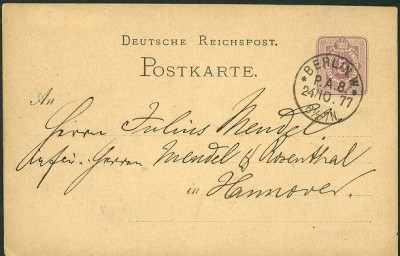 DEUTSCHE REICHSPOST.
POSTKARTE.
BERLIN W.
P.A.8.
24/10.77
An
Herrn Julius Mendel,
Herren Mendel & Rosenthal
in Hannover.